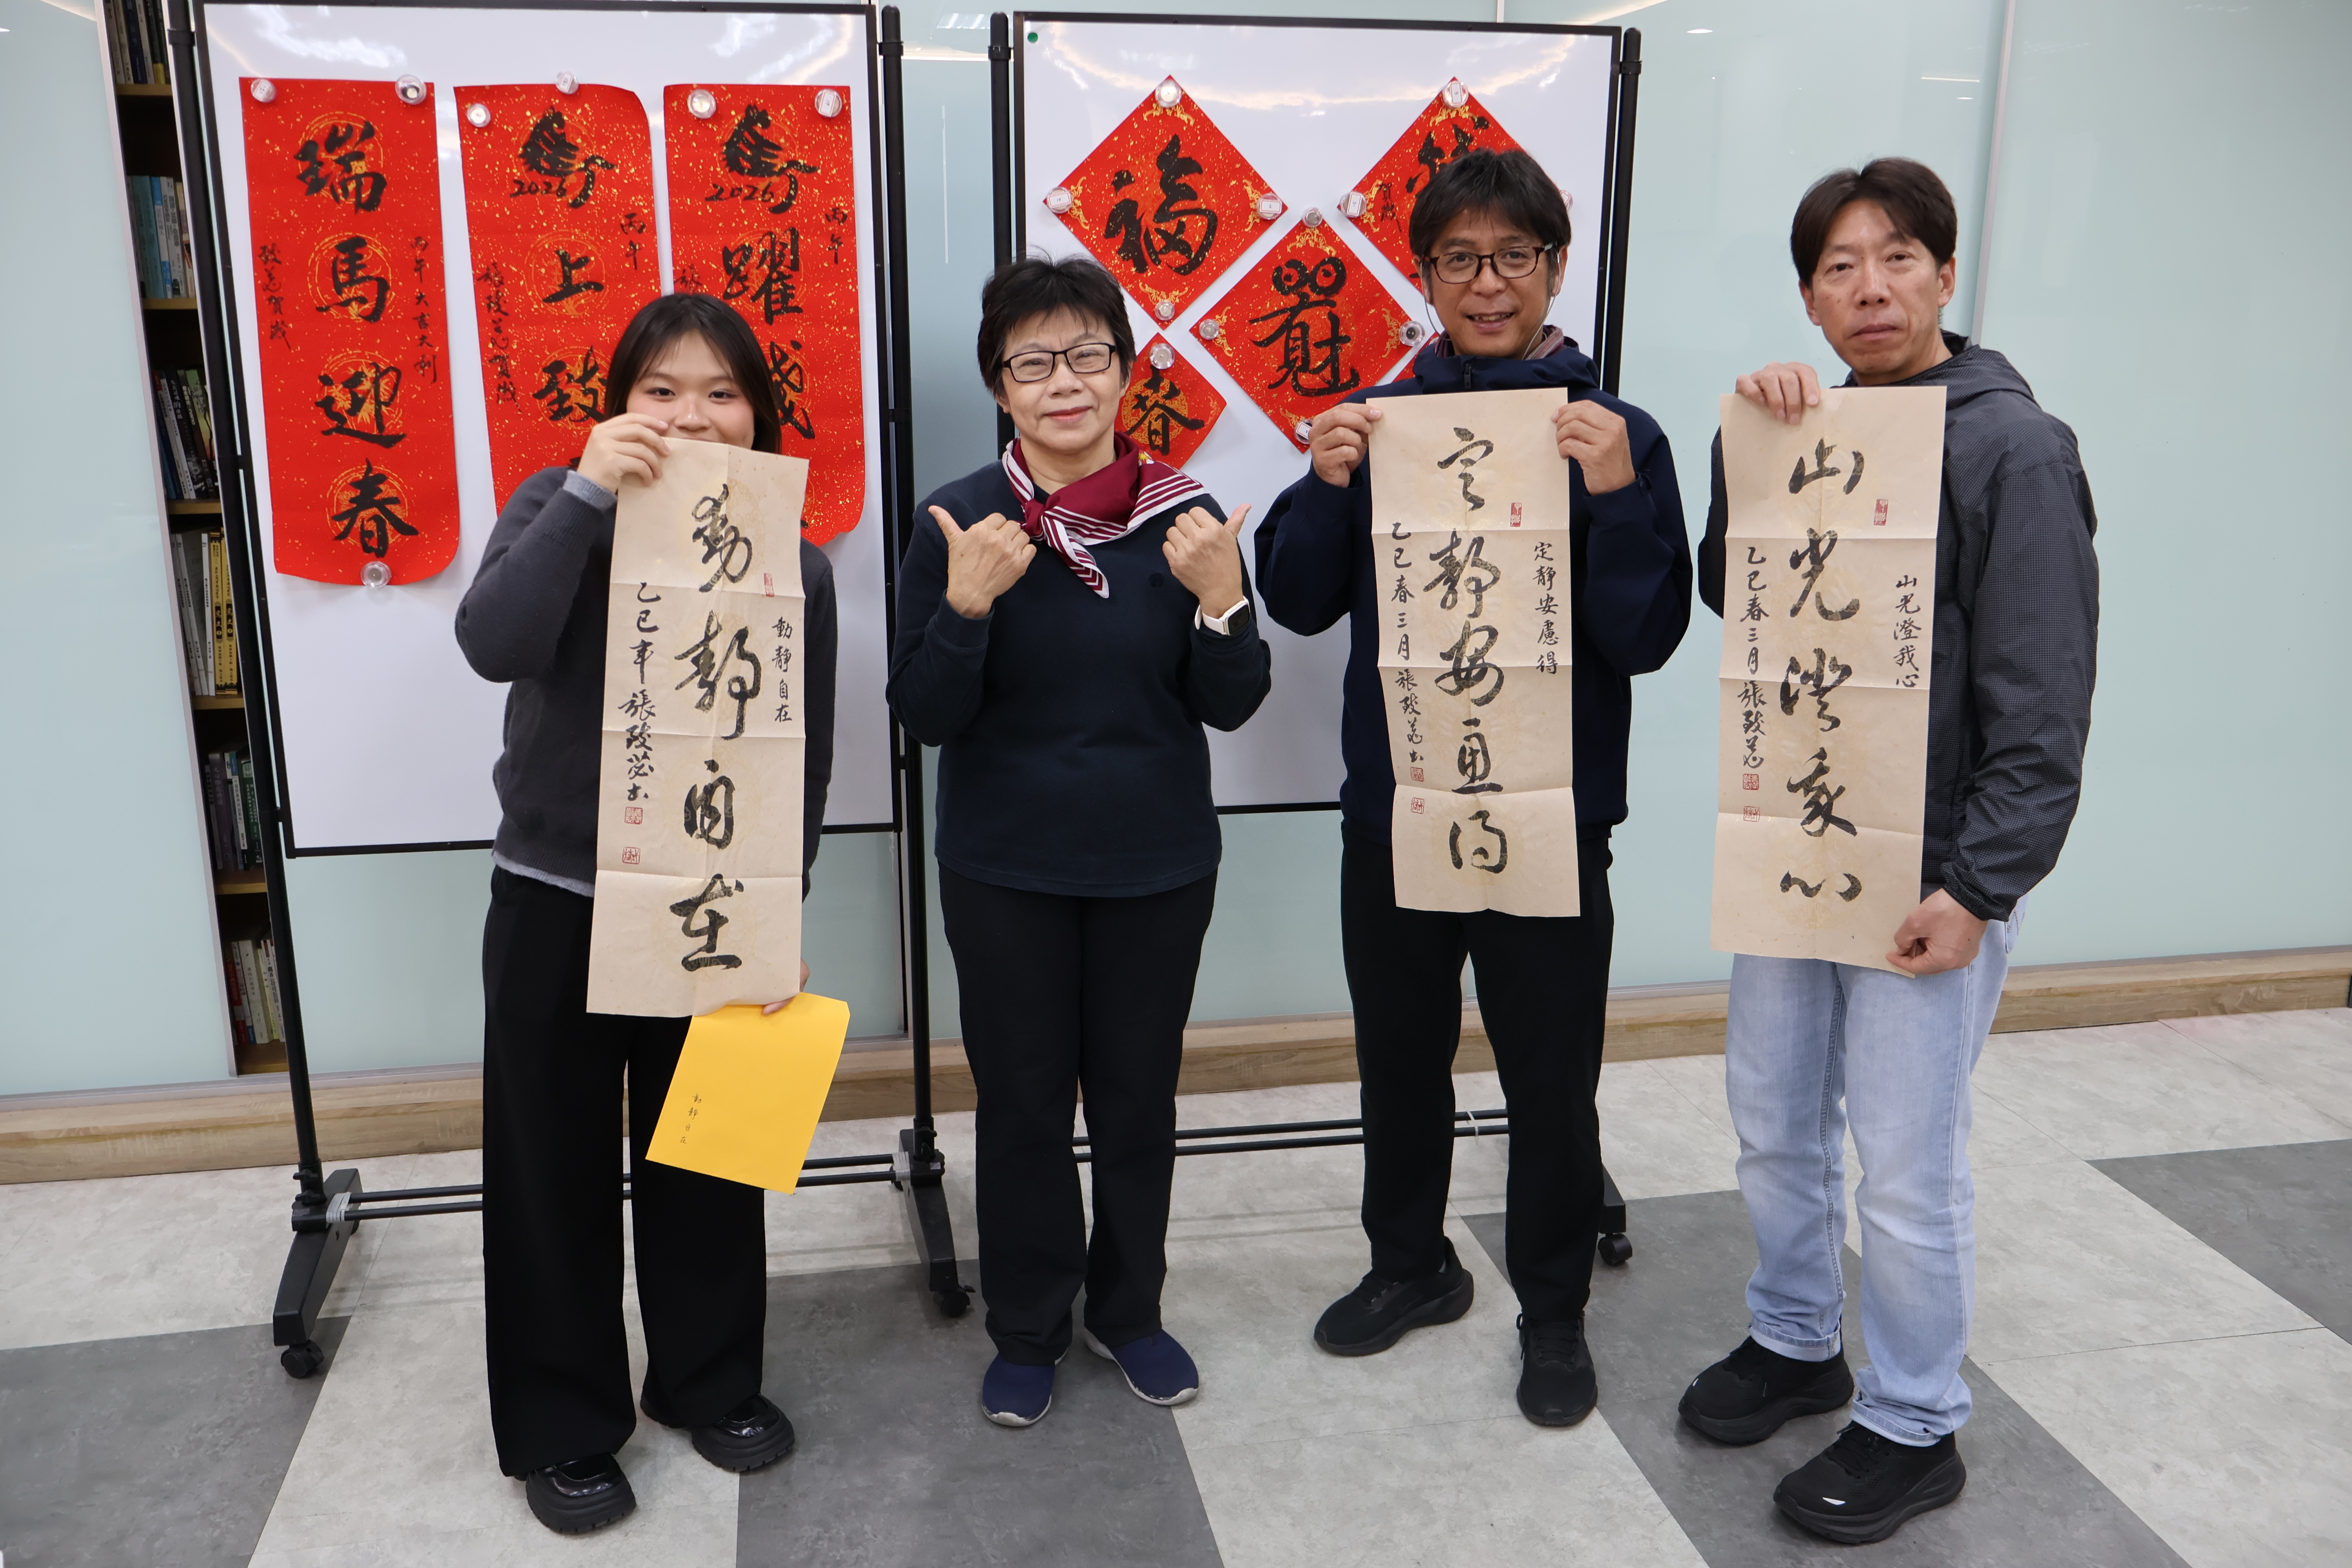 瑞馬迎春
丙午大吉大利
致苾賀歲
馬上致
2026
丙午
致苾賀歲
馬躍
2026
丙午
福
春
動靜自在
動靜自在
乙巳年 張致苾書
動靜自在
定靜安慮得
定靜安慮得
乙巳春三月 張致苾書
山光澄我心
山光澄我心
乙巳春三月 張致苾